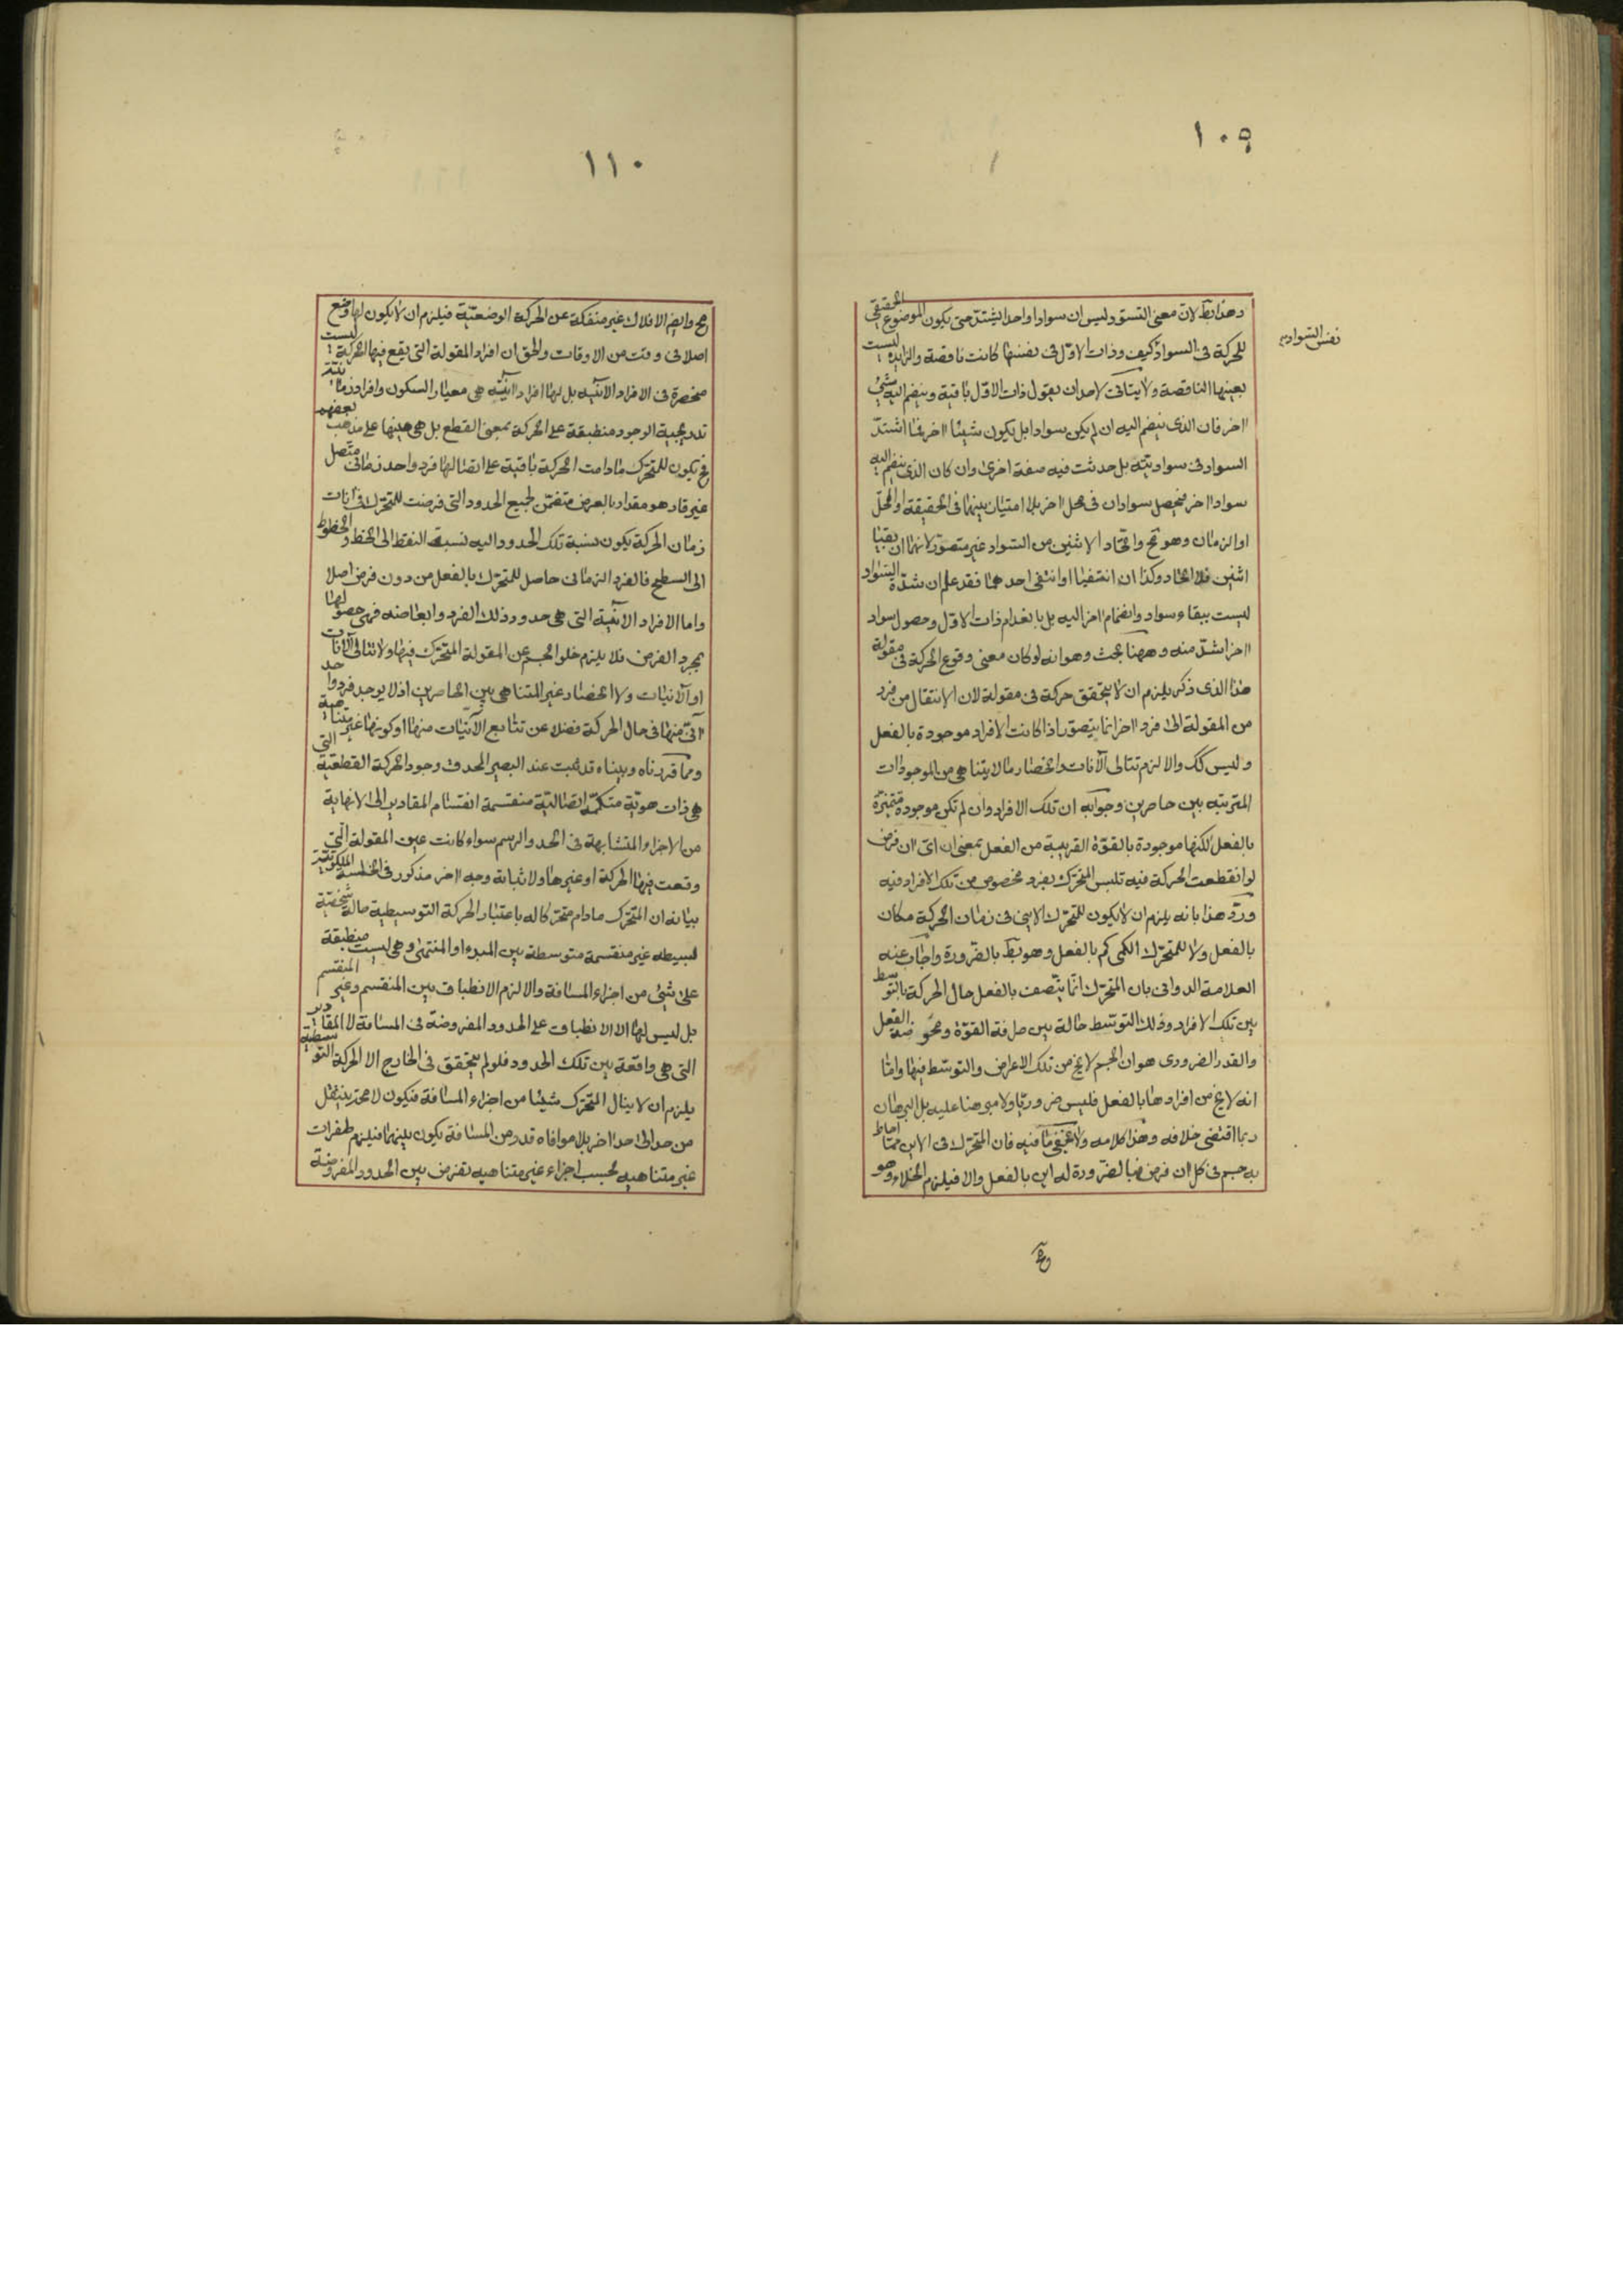 ١٠٩
وهذا بط لان معنى التسود ليس ان سوادا واحدا يشتد حتى يكون الموضوع الحقيقى
نفس السواد
للحركة فى السواد كيف وذات الاول فى نفسها كانت ناقصة والزايدة ليست
بعينها الناقصة ولا يتاتى لاحد ان يقول ذات الاول باقية وينضم اليه شئ
اخر فان الذى ينضم اليه ان لم يكن سوادا بل يكون شيئا اخر فما اشتد
السواد فى سواديته بل حدثت فيه صفة اخرى وان كان الذى ينضم اليه
سوادا اخر فيحصل سوادان فى محل اخر بلا امتياز بينهما فى الحقيقة او المحل
او الزمان وهو مح واتحاد الاثنين من السواد غير متصور لانهما ان بقيا
اثنين فلا اتحاد وكذا ان انتفيا او انتفى احدهما فقد علم ان شدة السواد
ليست ببقاء سواد وانضمام اخر اليه بل بانعدام ذات الاول وحصول سواد
اخر اشد منه وههنا بحث وهو انه لو كان معنى وقوع الحركة فى مقولة
هذا الذى ذكر يلزم ان لا يتحقق حركة فى مقولة لان الانتقال من فرد
من المقولة الى فرد اخر انما يتصور اذا كانت الافراد موجودة بالفعل
وليس كك والا لزم تتالى الآنات وانحصار ما لا يتناهى من الموجودات
المترتبه بين حاصرين وجوابه ان تلك الافراد وان لم تكن موجودة متميزة
بالفعل لكنها موجودة بالقوة القريبة من الفعل بمعنى ان اى ان فرض
لو انقطعت الحركة فيه تلبس المتحرك بفرد مخصوص من تلك الافراد فيه
ورد هذا بانه يلزم ان لا يكون للمتحرك الاينى فى زمان الحركة مكان
بالفعل ولا للمتحرك الكمى كم بالفعل وهو بط بالضرورة واجاب عنه
العلامة الدوانى بان المتحرك انما يتصف بالفعل حال الحركة بالتوسط
بين تلك الافراد وذلك التوسط حالة بين صرافة القوة ومحوضة الفعل
والقدر الضرورى هو ان الجسم لا يخ من تلك الاعراض والتوسط فيها واما
انه لا يخ من افرادها بالفعل فليس ضروريا ولا مبرهنا عليه بل البرهان
ربما اقتضى خلافه وهذا كلامه ولا يخفى ما فيه فان المتحرك فى الاين مما احاط
به جسم فى كل ان فرض فبالضرورة له اين بالفعل والا فيلزم الخلاء وهو
١١٠
مح وايضا الافلاك غير منفكة عن الحركة الوضعية فيلزم ان لا يكون لها وضع
اصلا فى وقت من الاوقات والحق ان افراد المقولة التى يقع فيها الحركة ليست
منحصرة فى الافراد الانية بل لها افراد آنية هى معيار السكون وافراد زمانية
تدريجية الوجود منطبقة على الحركة بمعنى القطع بل هى عينها على مذهب بعضهم
فح يكون للمتحرك ما دامت الحركة باقية على اتصالها فرد واحد زمانى متصل
غير قار هو مقدار بالعرض متضمن لجميع الحدود التى فرضت للمتحرك فى آنات
زمان الحركة يكون نسبة تلك الحدود اليه نسبة النقط الى الخط والخطوط
الى السطح فالفرد الزمانى حاصل للمتحرك بالفعل من دون فرض اصلا
واما الافراد الانية التى هى حدود ذلك الفرد وابعاضه فهى حصولها
بمجرد الفرض فلا يلزم خلو الجسم عن المقولة المتحرك فيها ولا تتالى الآنات
او الآنيات ولا انحصار غير المتناهى بين الحاصرين اذ لا يوجد فرد واحد
آنى منها فى حال الحركة فضلا عن تتابع الآنيات منها او كونها غير متناهية
ومما قررناه وبيناه قد ثبت عند البصير المحدق وجود الحركة القطعية التى
هى ذات هوية متكممة اتصالية منقسمة انقسام المقادير الى لا نهاية
من الاجزاء المتشابهة فى الحد والرسم سواء كانت عين المقولة التى
وقعت فيها الحركة او غيرها ولاثباته وجه اخر مذكور فى الخلسة الملكوتية
بيانه ان المتحرك مادام متحركا له باعتبار الحركة التوسطية حالة شخصية
بسيطه غير منقسمة متوسطة بين المبدء او المنتهى وهى ليست منطبقة
على شئ من اجزاء المسافة والا لزم الانطباق بين المنقسم وغير المنقسم
بل ليس لها الا الانطباق على الحدود المفروضة فى المسافة لا المقادير
التى هى واقعة بين تلك الحدود فلو لم يتحقق فى الخارج الا الحركة التوسطية
يلزم ان لا ينال المتحرك شيئا من اجزاء المسافة فيكون لا محة ينتقل
من حد الى حد اخر بلا موافاه قدر من المسافة يكون بينهما فيلزم طفرات
غير متناهيه بحسب اجزاء غير متناهيه تفرض بين الحدود المفروضة